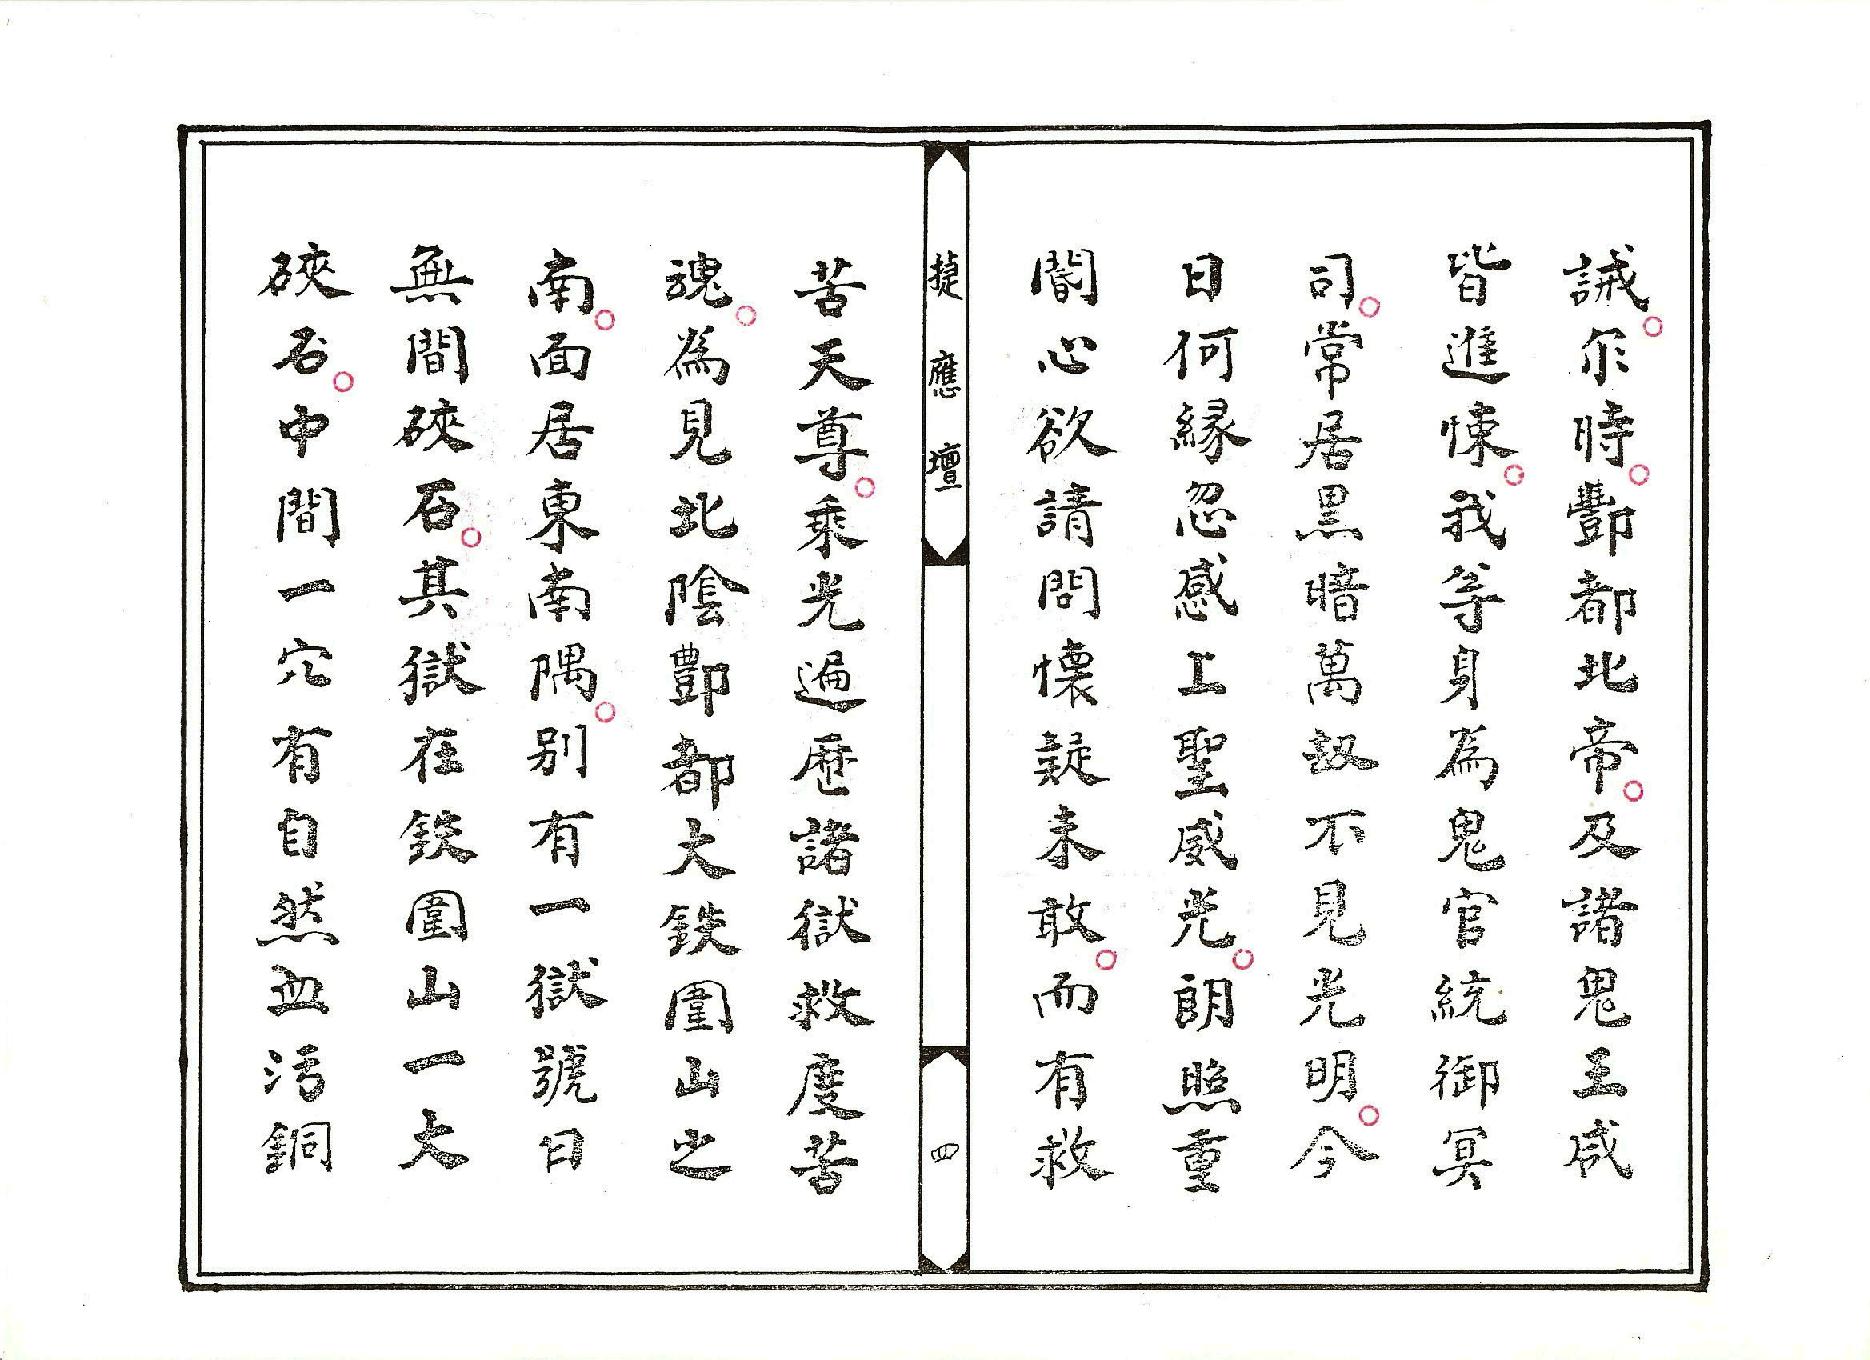 誡○尒時○酆都北帝○及諸鬼王咸
皆進悚○我等身為鬼官統御冥
司○常居黑暗萬劫不見光明○今
日何緣忽感上聖威光○朗照重
閽心欲請問懷疑未敢○而有救
捷應壇
四
苦天尊○乘光遍歷諸獄救度苦
魂○為見北陰酆都大鉄圍山之
南○面居東南隅○別有一獄號曰
無間硤石○其獄在鉄圍山一大
硤石○中間一穴有自然血污銅